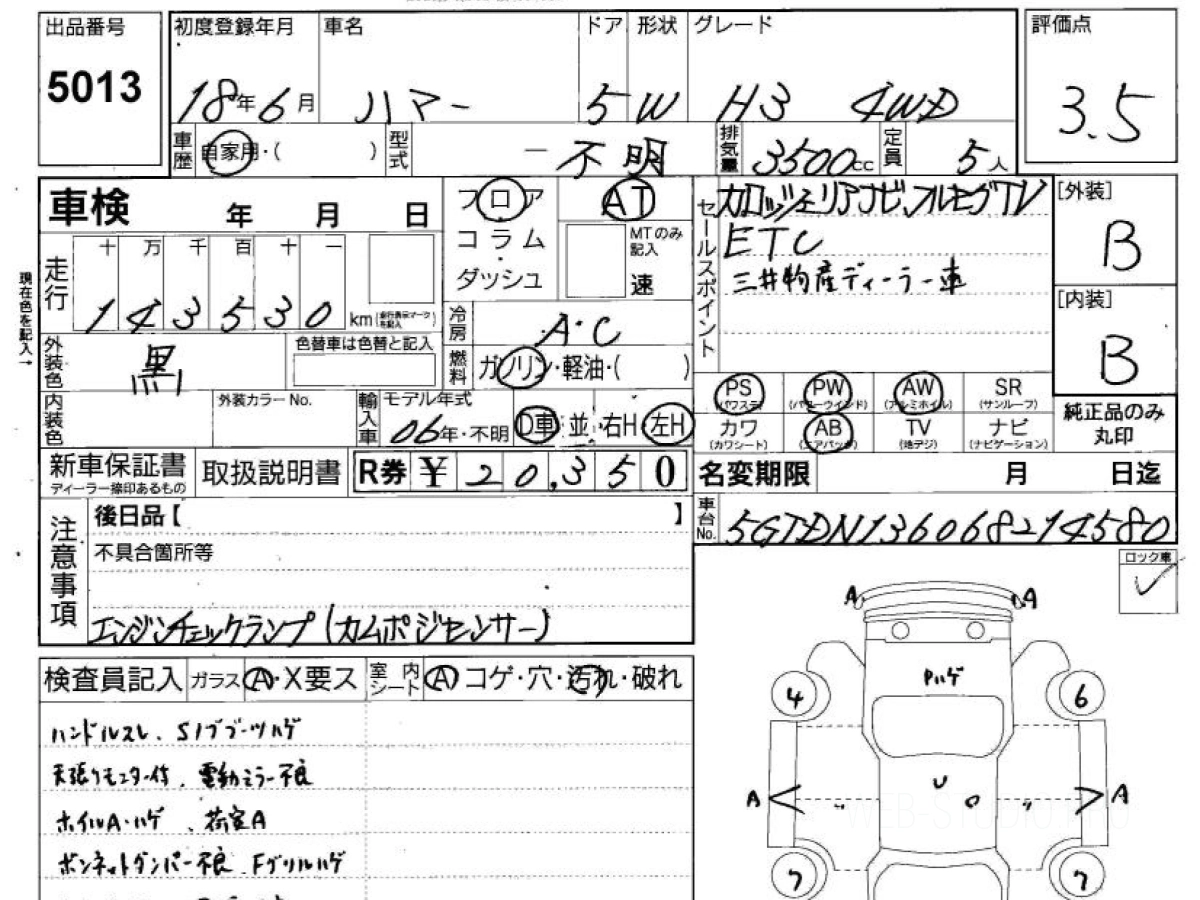 出品番号 5013
初度登録年月 18年6月
車名 ハマー
ドア 5
形状 W
グレード H3 4WD
評価点 3.5
車歴 自家用・( )
型式 ー不明
排気量 3500cc
定員 5人
車検 年 月 日
フロア
コラム
ダッシュ
AT
MTのみ記入
速
セールスポイント
カロッツェリアナビ、フルセグTV
ETC
三井物産ディーラー車
[外装] B
[内装] B
現在色を記入→
走行 十 万 千 百 十 一
143530 km
冷房 A・C
外装色 黒
色替車は色替と記入
燃料 ガソリン・軽油・( )
内装色
外装カラーNo.
輸入車
モデル年式
06年・不明
D車 並 右H 左H
PS (パワステ)
PW (パワーウインド)
AW (アルミホイル)
SR (サンルーフ)
カワ (カワシート)
AB (エアバッグ)
TV (地デジ)
ナビ (ナビゲーション)
純正品のみ
丸印
新車保証書
ディーラー捺印あるもの
取扱説明書
R券 ¥20,350
名変期限 月 日迄
車台No. 5GTDN136068214580
注意事項
後日品【 】
不具合箇所等
エンジンチェックランプ(カムポジセンサー)
ロック車
検査員記入
ガラス A・X要ス
室内シート A コゲ・穴・汚れ・破れ
ハンドルスレ、Sノブブーツハゲ
天張りモニター付、電動ミラー不良
ホイルA・ハゲ、荷室A
ボンネットダンパー不良、Fグリルハゲ
A A
Pハゲ
4 6
A A
U
7 7
WEB-STUDIO.PRO